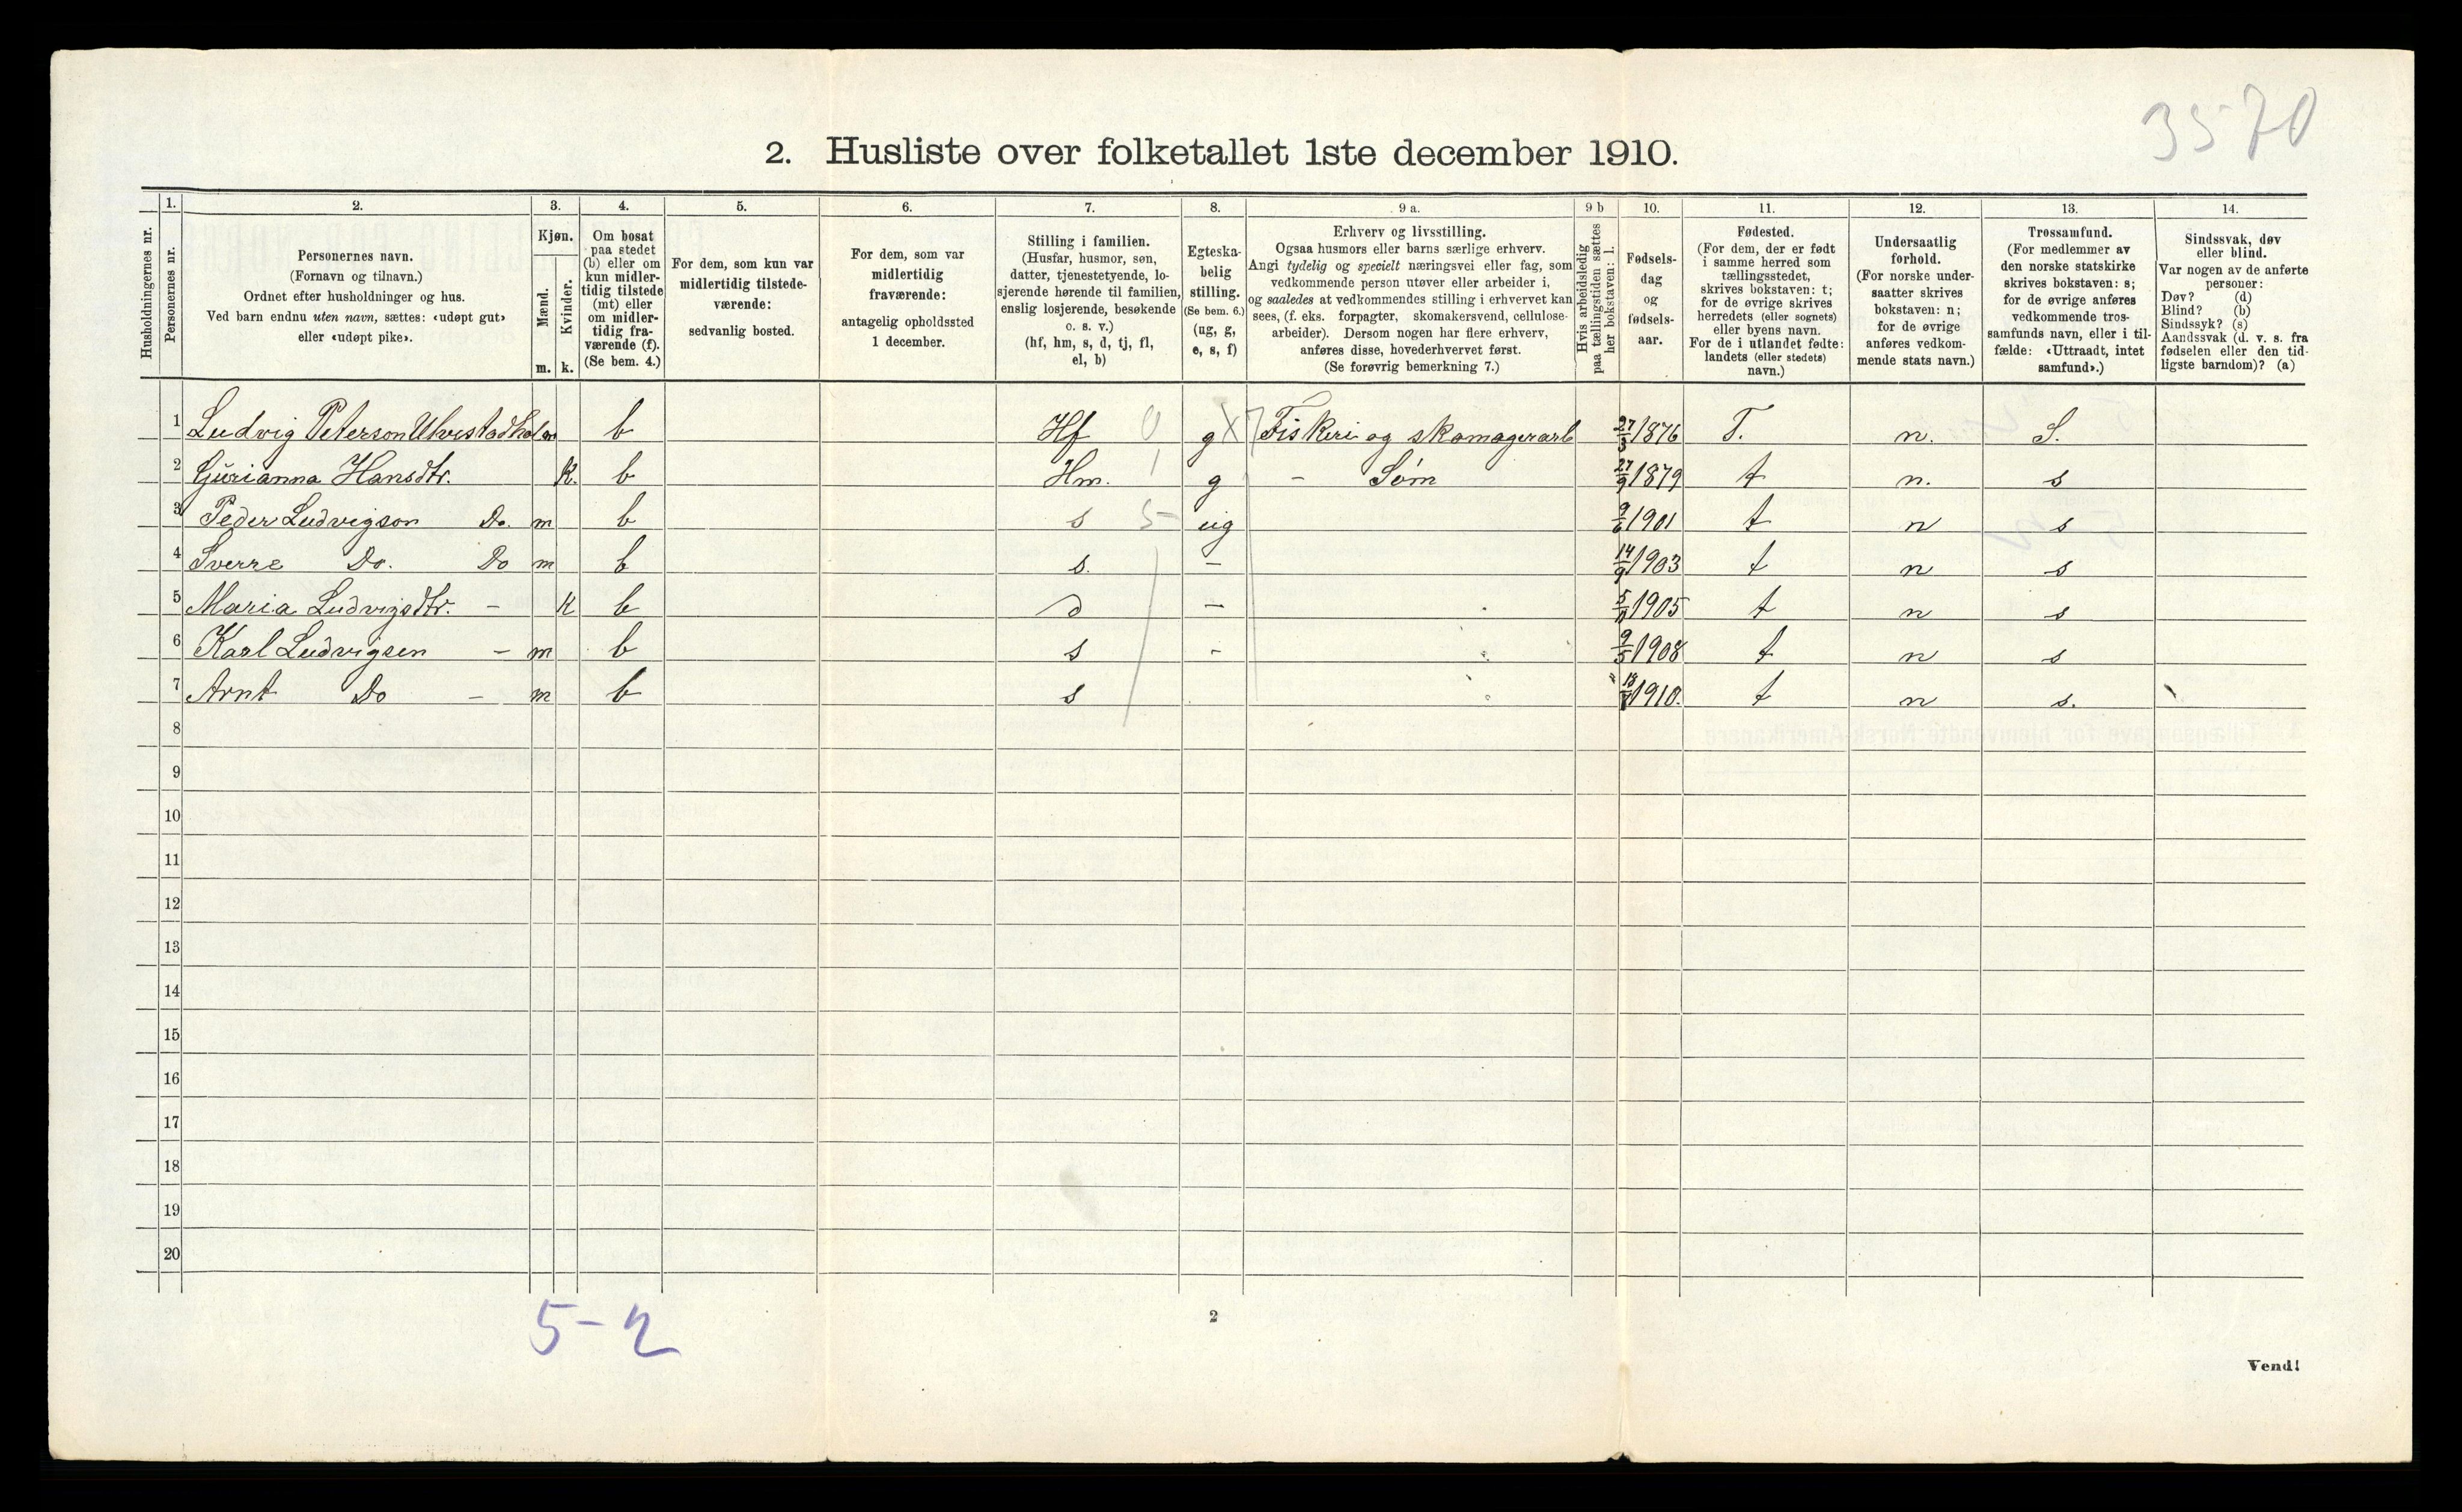 3570
2. Husliste over folketallet 1ste december 1910.
Husholdningernes nr.
1.
Personernes nr.
2.
Personernes navn.
(Fornavn og tilnavn.)
Ordnet efter husholdninger og hus.
Ved barn endnu uten navn, sættes: «udøpt gut»
eller «udøpt pike».
3.
Kjøn.
Mænd.
m.
Kvinder.
k.
4.
Om bosat
paa stedet
(b) eller om
kun midler-
tidig tilstede
(mt) eller
om midler-
tidig fra-
værende (f).
(Se bem. 4.)
5.
For dem, som kun var
midlertidig tilstede-
værende:
sedvanlig bosted.
6.
For dem, som var
midlertidig
fraværende:
antagelig opholdssted
1 december.
7.
Stilling i familien.
(Husfar, husmor, søn,
datter, tjenestetyende, lo-
sjerende hørende til familien,
enslig losjerende, besøkende
o. s. v.)
(hf, hm, s, d, tj, fl,
el, b)
8.
Egteska-
belig
stilling.
(Se bem. 6.)
(ug, g,
e, s, f)
9 a.
Erhverv og livsstilling.
Ogsaa husmors eller barns særlige erhverv.
Angi tydelig og specielt næringsvei eller fag, som
vedkommende person utøver eller arbeider i,
og saaledes at vedkommendes stilling i erhvervet kan
sees, (f. eks. forpagter, skomakersvend, cellulose-
arbeider). Dersom nogen har flere erhverv,
anføres disse, hovederhvervet først.
(Se forøvrig bemerkning 7.)
9 b
Hvis arbeidsledig
paa tællingstiden sættes
her bokstaven: l.
10.
Fødsels-
dag
og
fødsels-
aar.
11.
Fødested.
(For dem, der er født
i samme herred som
tællingsstedet,
skrives bokstaven: t;
for de øvrige skrives
herredets (eller sognets)
eller byens navn.
For de i utlandet fødte:
landets (eller stedets)
navn.)
12.
Undersaatlig
forhold.
(For norske under-
saatter skrives
bokstaven: n;
for de øvrige
anføres vedkom-
mende stats navn.)
13.
Trossamfund.
(For medlemmer av
den norske statskirke
skrives bokstaven: s;
for de øvrige anføres
vedkommende tros-
samfunds navn, eller i til-
fælde: «Uttraadt, intet
samfund».)
14.
Sindssvak, døv
eller blind.
Var nogen av de anførte
personer:
Døv? (d)
Blind? (b)
Sindssyk? (s)
Aandssvak (d. v. s. fra
fødselen eller den tid-
ligste barndom)? (a)
1 Ludvig Peterson Ulvestadholm b Hf 0 g X7 Fiskeri og skomagerarb 27/3 1876 T. n. S.
2 Gurianna Hansdtr. K. b Hm. 1 g - Søm 27/9 1879 t n. s
3 Peder Ludvigson Do. m b s 5 ug 9/6 1901 t n s
4 Sverre Do. Do m b s. - 14/9 1903 t n s
5 Maria Ludvigsdtr. - K b d - 5/11 1905 t n s
6 Karl Ludvigsen - m b s - 9/5 1908 t n s
7 Arnt Do - m b s 1910. t n s.
8
9
10
11
12
13
14
15
16
17
18
19
20
5-2
2
Vend!